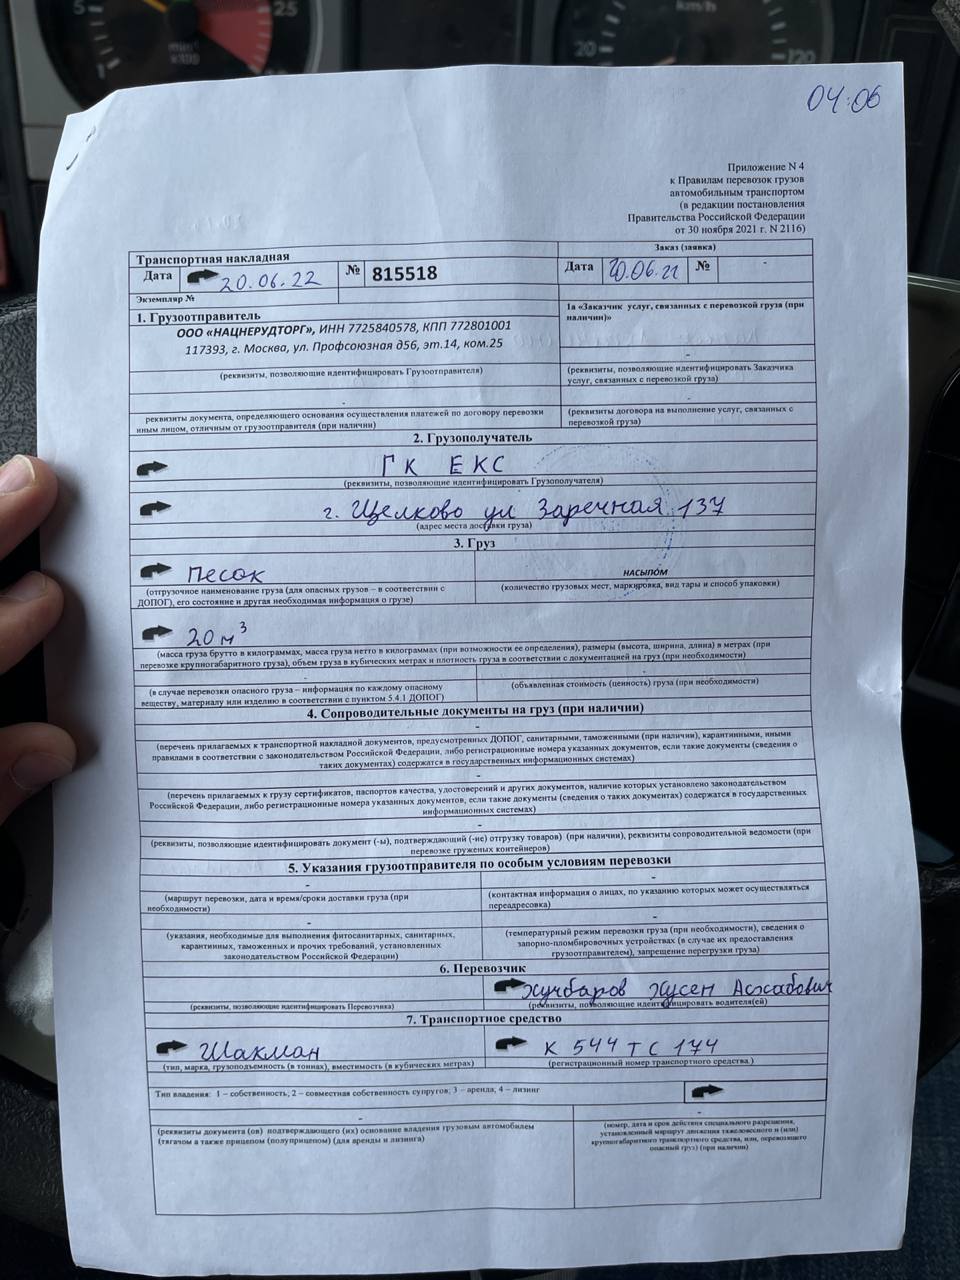 5
25
min¹
x100
1
km/h
20
120
04:06
Приложение N 4
к Правилам перевозок грузов
автомобильным транспортом
(в редакции постановления
Правительства Российской Федерации
от 30 ноября 2021 г. N 2116)
Транспортная накладная
Заказ (заявка)
Дата 20.06.22 № 815518
Дата 20.06.22 № -
Экземпляр №
1. Грузоотправитель
1а «Заказчик услуг, связанных с перевозкой груза (при наличии)»
ООО «НАЦНЕРУДТОРГ», ИНН 7725840578, КПП 772801001
117393, г. Москва, ул. Профсоюзная д56, эт.14, ком.25
-
(реквизиты, позволяющие идентифицировать Грузоотправителя)
(реквизиты, позволяющие идентифицировать Заказчика
услуг, связанных с перевозкой груза)
-
-
реквизиты документа, определяющего основания осуществления платежей по договору перевозки
иным лицом, отличным от грузоотправителя (при наличии)
(реквизиты договора на выполнение услуг, связанных с
перевозкой груза)
2. Грузополучатель
ГК ЕКС
(реквизиты, позволяющие идентифицировать Грузополучателя)
г. Щелково ул Заречная 137
(адрес места доставки груза)
3. Груз
Песок
НАСЫПОМ
(отгрузочное наименование груза (для опасных грузов – в соответствии с
ДОПОГ), его состояние и другая необходимая информация о грузе)
(количество грузовых мест, маркировка, вид тары и способ упаковки)
20 м³
(масса груза брутто в килограммах, масса груза нетто в килограммах (при возможности ее определения), размеры (высота, ширина, длина) в метрах (при
перевозке крупногабаритного груза), объем груза в кубических метрах и плотность груза в соответствии с документацией на груз (при необходимости)
-
(в случае перевозки опасного груза – информация по каждому опасному
веществу, материалу или изделию в соответствии с пунктом 5.4.1 ДОПОГ)
(объявленная стоимость (ценность) груза (при необходимости)
4. Сопроводительные документы на груз (при наличии)
-
(перечень прилагаемых к транспортной накладной документов, предусмотренных ДОПОГ, санитарными, таможенными (при наличии), карантинными, иными
правилами в соответствии с законодательством Российской Федерации, либо регистрационные номера указанных документов, если такие документы (сведения о
таких документах) содержатся в государственных информационных системах)
-
(перечень прилагаемых к грузу сертификатов, паспортов качества, удостоверений и других документов, наличие которых установлено законодательством
Российской Федерации, либо регистрационные номера указанных документов, если такие документы (сведения о таких документах) содержатся в государственных
информационных системах)
-
(реквизиты, позволяющие идентифицировать документ (-ы), подтверждающий (-ие) отгрузку товаров) (при наличии), реквизиты сопроводительной ведомости (при
перевозке груженых контейнеров)
5. Указания грузоотправителя по особым условиям перевозки
-
-
(маршрут перевозки, дата и время/сроки доставки груза (при
необходимости)
(контактная информация о лицах, по указанию которых может осуществляться
переадресовка)
-
-
(указания, необходимые для выполнения фитосанитарных, санитарных,
карантинных, таможенных и прочих требований, установленных
законодательством Российской Федерации)
(температурный режим перевозки груза (при необходимости), сведения о
запорно-пломбировочных устройствах (в случае их предоставления
грузоотправителем), запрещение перегрузки груза)
6. Перевозчик
Хучбаров Хусен Асхабович
(реквизиты, позволяющие идентифицировать Перевозчика)
(реквизиты, позволяющие идентифицировать водителя(ей)
7. Транспортное средство
Шакман
К 544 ТС 174
(тип, марка, грузоподъемность (в тоннах), вместимость (в кубических метрах)
(регистрационный номер транспортного средства.)
Тип владения: 1 – собственность; 2 – совместная собственность супругов; 3 – аренда; 4 – лизинг
-
-
(реквизиты документа (ов) подтверждающего (их) основание владения грузовым автомобилем
(тягачом а также прицепом (полуприцепом) (для аренды и лизинга)
(номер, дата и срок действия специального разрешения,
установленный маршрут движения тяжеловесного и (или)
крупногабаритного транспортного средства, или, перевозящего
опасный груз) (при наличии)